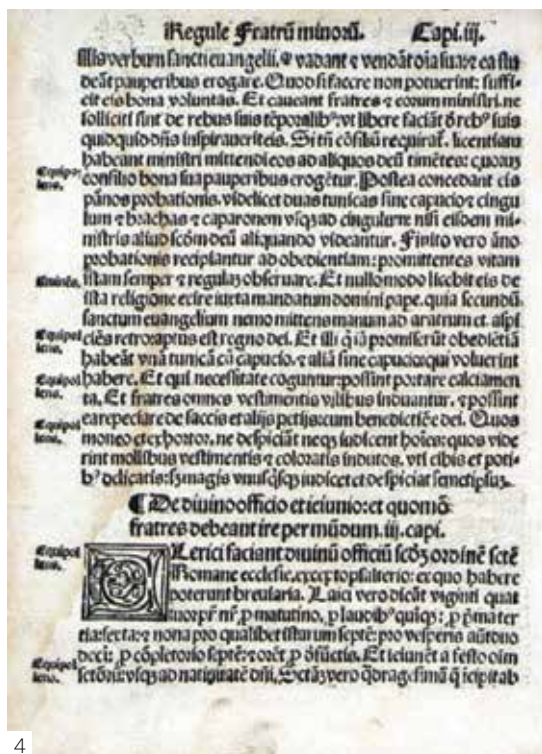 Regule Fratrū minorū. Capi. iij.
illis verbum sancti euangelii, ꝙ vadant ⁊ vendāt oīa sua: ⁊ ea stu
deāt pauperibus erogare. Quod si facere non potuerint: suffi-
cit eis bona voluntas. Et caueant fratres ⁊ eorum ministri. ne
solliciti sint de rebus suis tēporalibꝰ: vt libere faciāt d̄ rebꝰ suis
quidquid dn̄s inspirauerit eis. Si tn̄ cōsiliū requirāt. licentiam
habeant ministri mittendi eos ad aliquos deū timētes: quorum
Equipol
lens.
consilio bona sua pauperibus erogētur. Postea concedant eis
pānos probationis. videlicet duas tunicas sine capucio ⁊ cingu
lum ⁊ brachas ⁊ caparonem vsqꝫ ad cingulum: nisi eisdem mi-
nistris aliud scd̄m deū aliquando videatur. Finito vero āno
probationis recipiantur ad obedientiam: promittentes vitam
istam semper ⁊ regulaꝫ obseruare. Et nullo modo licebit eis de
ista religione exire iuxta mandatum domini pape. quia secundū.
sanctum euangelium nemo mittens manum ad aratrum et aspi
Equipol
lens.
ciēs retro: aptus est regno dei. Et illi q̄ iā promiserūt obediētiā
habeāt vnā tunicā cū capucio. ⁊ aliā sine capucio: qui voluerint
Equipol
lens.
habere. Et qui necessitate coguntur: possint portare calciamen
ta. Et fratres omnes vestimentis vilibus induantur. ⁊ possint
Equipol
lens.
ea repeciare de saccis et alijs petijs: cum benedictiōe dei. Quos
moneo et exhortor. ne despiciāt neqꝫ iudicent hoīes: quos vide
rint mollibus vestimentis ⁊ coloratis indutos. vti cibis et poti-
bꝰ delicatis: sꝫ magis vnusq̄sqꝫ iudicet et despiciat semetipsuꝫ.
¶ De diuino officio et ieiunio: et quomō
fratres debeant ire per mūdum. iij. capi.
Equipol
lens.
CLerici faciant diuinū officiū scd̄ꝫ ordinē scte
Romane ecclesie, excepto psalterio: ex quo habere
poterunt breuiaria. Laici vero dicāt viginti quat
tuor pr̄ nr̄. ꝑ matutino. ꝑ laudibꝰ quīqꝫ: ꝑ p̄ma ter
tia: sexta: ⁊ nona pro qualibet istarum septē: pro vesperis autē duo
Equipol
lens.
deci: ꝑ cōpletorio septē: ⁊ orēt ꝑ dēfūctis. Et ieiunēt a festo oīm
sctōrū: vsqꝫ ad natiuitatē dn̄i. Sctāꝫ vero q̄dragesimā q̄ īcipit ab
4